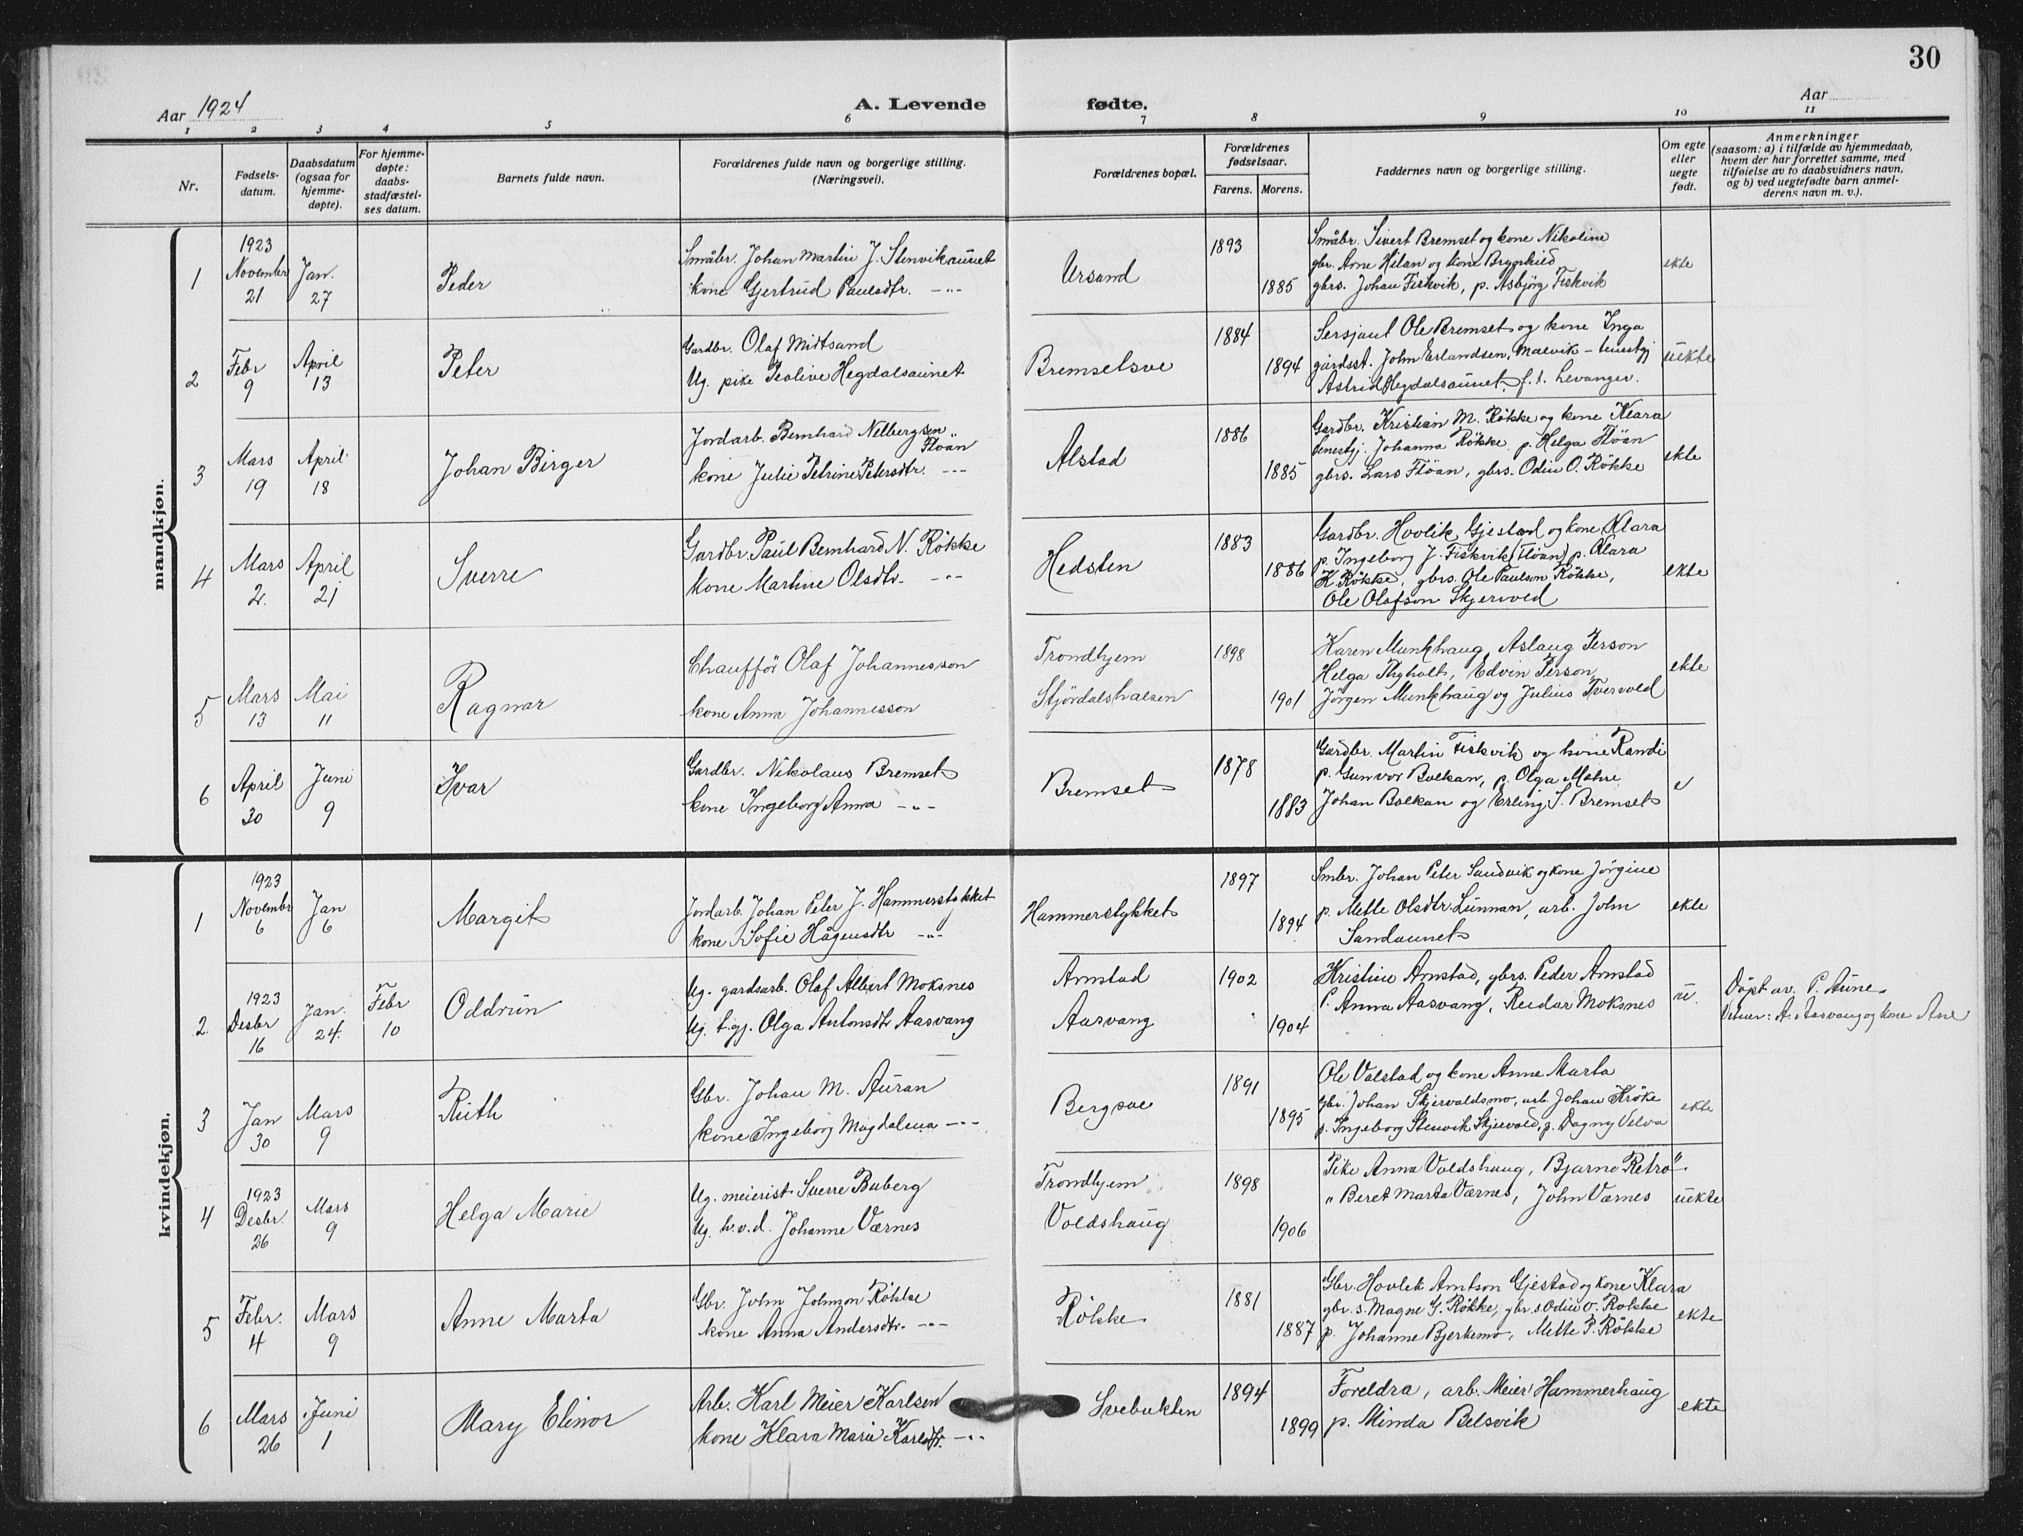 30
Aar 1924
A. Levende fødte.
Aar
1 2 3 4 5 6 7 8 9 10 11
Nr.
Fødsels-
datum.
Daabsdatum
(ogsaa for
hjemme-
døpte).
For hjemme-
døpte:
daabs-
stadfæstel-
ses datum.
Barnets fulde navn.
Forældrenes fulde navn og borgerlige stilling.
(Næringsvei).
Forældrenes bopæl.
Forældrenes
fødselsaar.
Farens. Morens.
Faddernes navn og borgerlige stilling.
Om egte
eller
uegte
født.
Anmerkninger
(saasom: a) i tilfælde av hjemmedaab,
hvem der har forrettet samme, med
tilføielse av to daabsvidners navn,
og b) ved uegtefødte barn anmel-
derens navn m. v.).
mandkjøn.
1
1923
November
21
Jan.
27
Peder
Småbr. Johan Martin J. Stenvikaunet
kone Gjertrud Paulsdtr. -"-
Ursand
1893
1885
Småbr. Sivert Bremset og kone Nikoline
gbr. Arne Hilan og kone Brynhild
gbrs. Johan Fiskvik, p. Asbjørg Fiskvik
ekte
2
Febr
9
April
13
Peter
Gardbr. Olaf Midtsand
Ug. pike Peolive Hegdalsaunet
Bremsetsve
1884
1894
Sersjant Ole Bremset og kone Inga
gårdsst. John Erlandsen, Malvik – tenestgj
Astrid Hegdalsaunet f. t. Levanger.
uekte
3
Mars
19
April
18
Johan Birger
Jordarb. Bernhard Nelbergsen
Fløan
kone Julie Petrine Petersdtr. -"-
Alstad
1886
1885
Gardbr. Kristian M. Røkke og kone Klara
tenestj. Johanna Røkke p. Helga Fløan
gbrs. Lars Fløan, gbrs. Odin O. Røkke
ekte
4
Mars
2.
April
21
Sverre
Gardbr. Paul Bernhard N. Røkke
kone Martine Olsdtr. -"-
Hedsten
1883
1886
Gardbr. Hovlik Gjestad og kone Klara
p. Ingeborg J. Fiskvik (Fløan) p. Clara
K. Røkke, gbrs. Ole Paulson Røkke,
Ole Olafson Skjervold
ekte
5
Mars
13
Mai
11
Ragnar
Chauffør Olaf Johannesson
kone Anna Johannesson
Trondhjem
Stjørdalshalsen
1898
1901
Karen Munkhaug, Aslaug Person
Helga Thyholt, Edvin Person
Jørgen Munkhaug og Julius Tvervold
ekte
6
April
30
Juni
9
Ivar
Gardbr. Nikolaus Bremset
kone Ingeborg Anna -"-
Bremset
1878
1883
Gardbr Martin Fiskvik og kone Randi
p. Gunvor Balkan, p. Olga Mæhre
Johan Balkan og Erling S. Bremset
e
kvindekjøn.
1
1923
Novembr
6
Jan
6
Margit
Jordarb. Johan Peter J. Hammerstykket
kone Sofie Hågensdtr -"-
Hammerstykket
1897
1894
Smbr. Johan Peter Sandvik og kone Jørgine
p. Mette Olsdtr. Lunnan, arb. John
Sandaunet
ekte
2
1923
Desbr
16
Jan.
24.
Febr
10
Oddrun
Ug. gardsarb. Olaf Albert Moksnes
Ug. t.gj. Olga Antonsdtr Aasvang
Arnstad
Aasvang
1902
1904
Kristine Arnstad, gbrs. Peder Arnstad
P. Anna Aasvang, Reidar Moksnes
u.
Døpt av P. Aune.
Vitner: A. Aasvang og kone Ane
3
Jan
30
Mars
9
Ruth
Gbr. Johan M. Auran
kone Ingeborg Magdalena -"-
Bergsve
1891
1895
Ole Valstad og kone Anne Marta
gbr. Johan Skjervoldsmo, arb. Johan Krøke
p. Ingeborg Stenvik Skjervold, p. Dagny Velva
ekte
4
1923
Desbr.
26
Mars
9
Helga Marie
Ug. meierist Sverre Buberg
Ug. h.v.d. Johanne Værnes
Trondhjem
Voldshaug
1898
1906
Pike Anna Voldshaug, Bjarne Retrø
" Beret Marta Værnes, John Værnes
uekte
5
Febr.
4
Mars
9
Anne Marta
Gbr. John Johnson Røkke
kone Anna Andersdtr. -"-
Røkke
1881
1887
Gbr. Hovlek Arntson Gjestad og kone Klara
gbr.s. Magne G. Røkke, gbr.s. Odin O. Røkke
p. Johanne Bjerkemo, Mette P. Røkke
ekte
6
Mars
26
Juni
1
Mary Elinor
Arb. Karl Meier Karlsen
kone Klara Marie Karlsdtr. -"-
Svebukten
1894
1899
Foreldra, arb. Meier Hammerhaug
p. Minda Belsvik
ekte